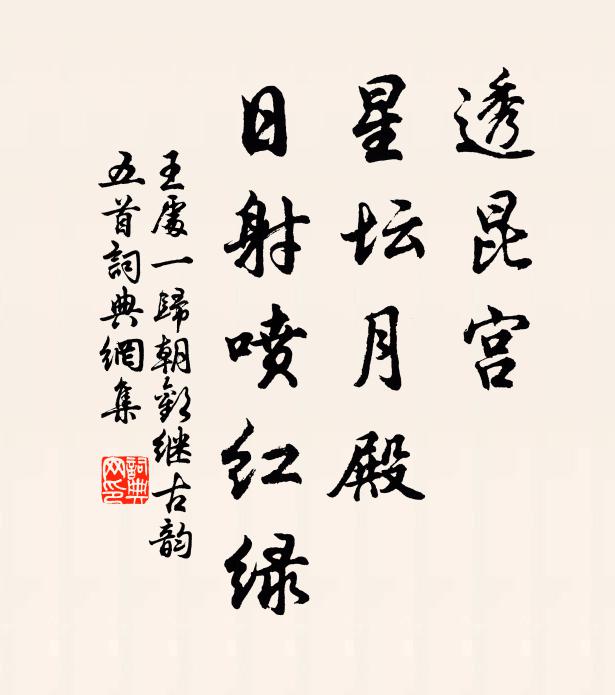 透昆宫
星坛月殿
日射喷红绿
王處一歸朝歡继古韵
五首詞典網集
詞典
网印